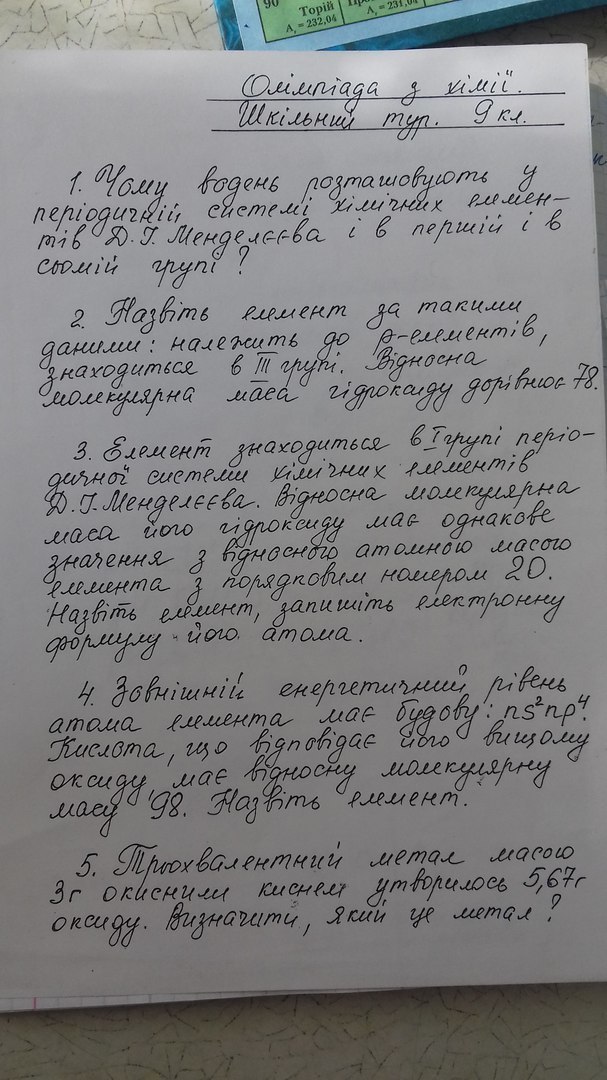 90 Торій
Aᵣ = 232,04
Aᵣ = 231,04
Олімпіада з хімії.
Шкільний тур. 9 кл.
1. Чому водень розташовують у
періодичній системі хімічних елемен-
тів Д.І. Менделєєва і в першій і в
сьомій групі?
2. Назвіть елемент за такими
даними: належить до p-елементів,
знаходиться в III групі. Відносна
молекулярна маса гідроксиду дорівнює 78.
3. Елемент знаходиться в I групі періо-
дичної системи хімічних елементів
Д.І. Менделєєва. Відносна молекулярна
маса його гідроксиду має однакове
значення з відносною атомною масою
елемента з порядковим номером 20.
Назвіть елемент, запишіть електронну
формулу його атома.
4. Зовнішній енергетичний рівень
атома елемента має будову: ns²np⁴.
Кислота, що відповідає його вищому
оксиду, має відносну молекулярну
масу 98. Назвіть елемент.
5. Трьохвалентний метал масою
3г окиснили киснем утворилось 5,67г
оксиду. Визначити, який це метал?